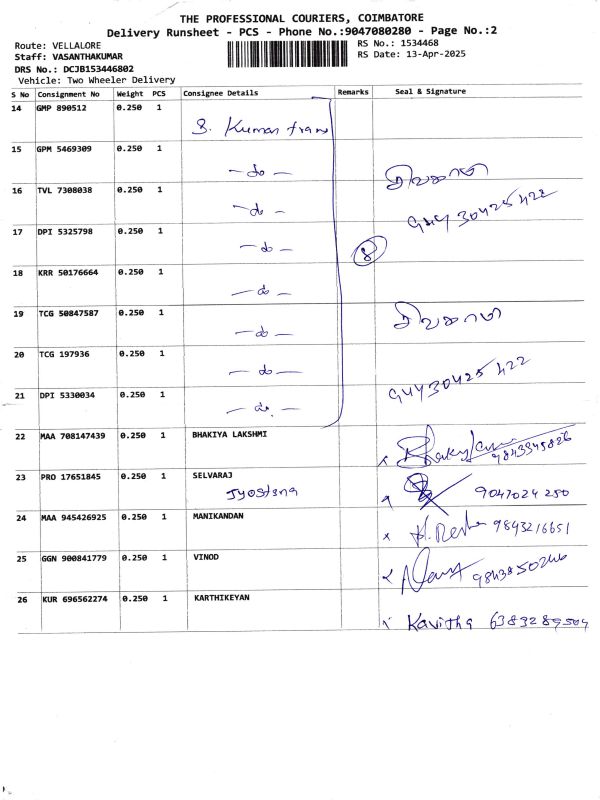 THE PROFESSIONAL COURIERS, COIMBATORE
Delivery Runsheet - PCS - Phone No.:9047080280 - Page No.:2
Route: VELLALORE
RS No.: 1534468
Staff: VASANTHAKUMAR
RS Date: 13-Apr-2025
DRS No.: DCJB153446802
Vehicle: Two Wheeler Delivery
S No Consignment No Weight PCS Consignee Details Remarks Seal & Signature
14 GMP 890512 0.250 1
S. Kumar
15 GPM 5469309 0.250 1
- do -
16 TVL 7308038 0.250 1
- do -
17 DPI 5325798 0.250 1
- do -
8
18 KRR 50176664 0.250 1
- do -
19 TCG 50847587 0.250 1
- do -
20 TCG 197936 0.250 1
- do -
21 DPI 5330034 0.250 1
- do -
22 MAA 708147439 0.250 1 BHAKIYA LAKSHMI
23 PRO 17651845 0.250 1 SELVARAJ
Jyostsna 9047024250
24 MAA 945426925 0.250 1 MANIKANDAN
9843216651
25 GGN 900841779 0.250 1 VINOD
26 KUR 696562274 0.250 1 KARTHIKEYAN
Kavitha 6383289504